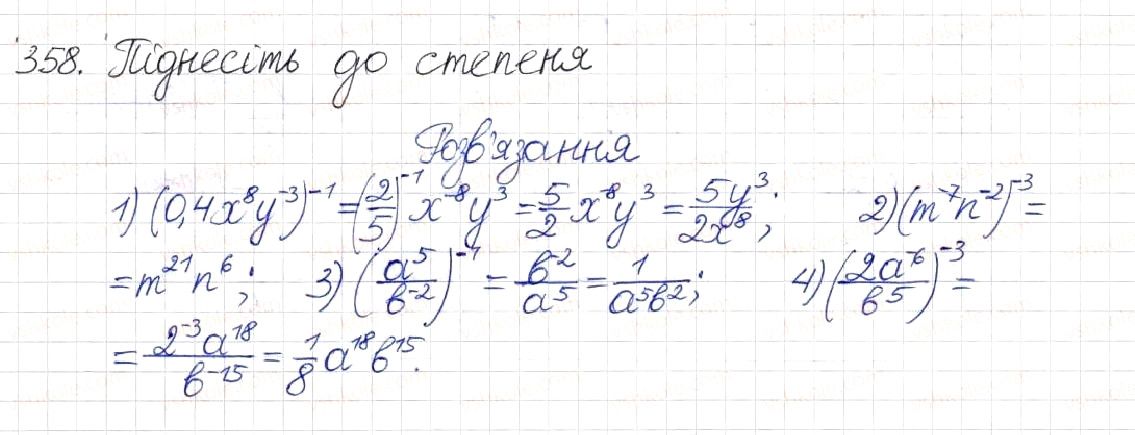 358. Піднесіть до степеня
Розв'язання
1) (0,4x⁸y⁻³)⁻¹ = (2/5)⁻¹ x⁻⁸y³ = 5/2 x⁻⁸y³ = 5y³/2x⁸; 2) (m⁻⁷n⁻²)⁻³ =
= m²¹n⁶; 3) (a⁵/b⁻²)⁻¹ = b⁻²/a⁵ = 1/a⁵b²; 4) (2a⁻⁶/b⁵)⁻³ =
= 2⁻³a¹⁸/b⁻¹⁵ = 1/8 a¹⁸b¹⁵.